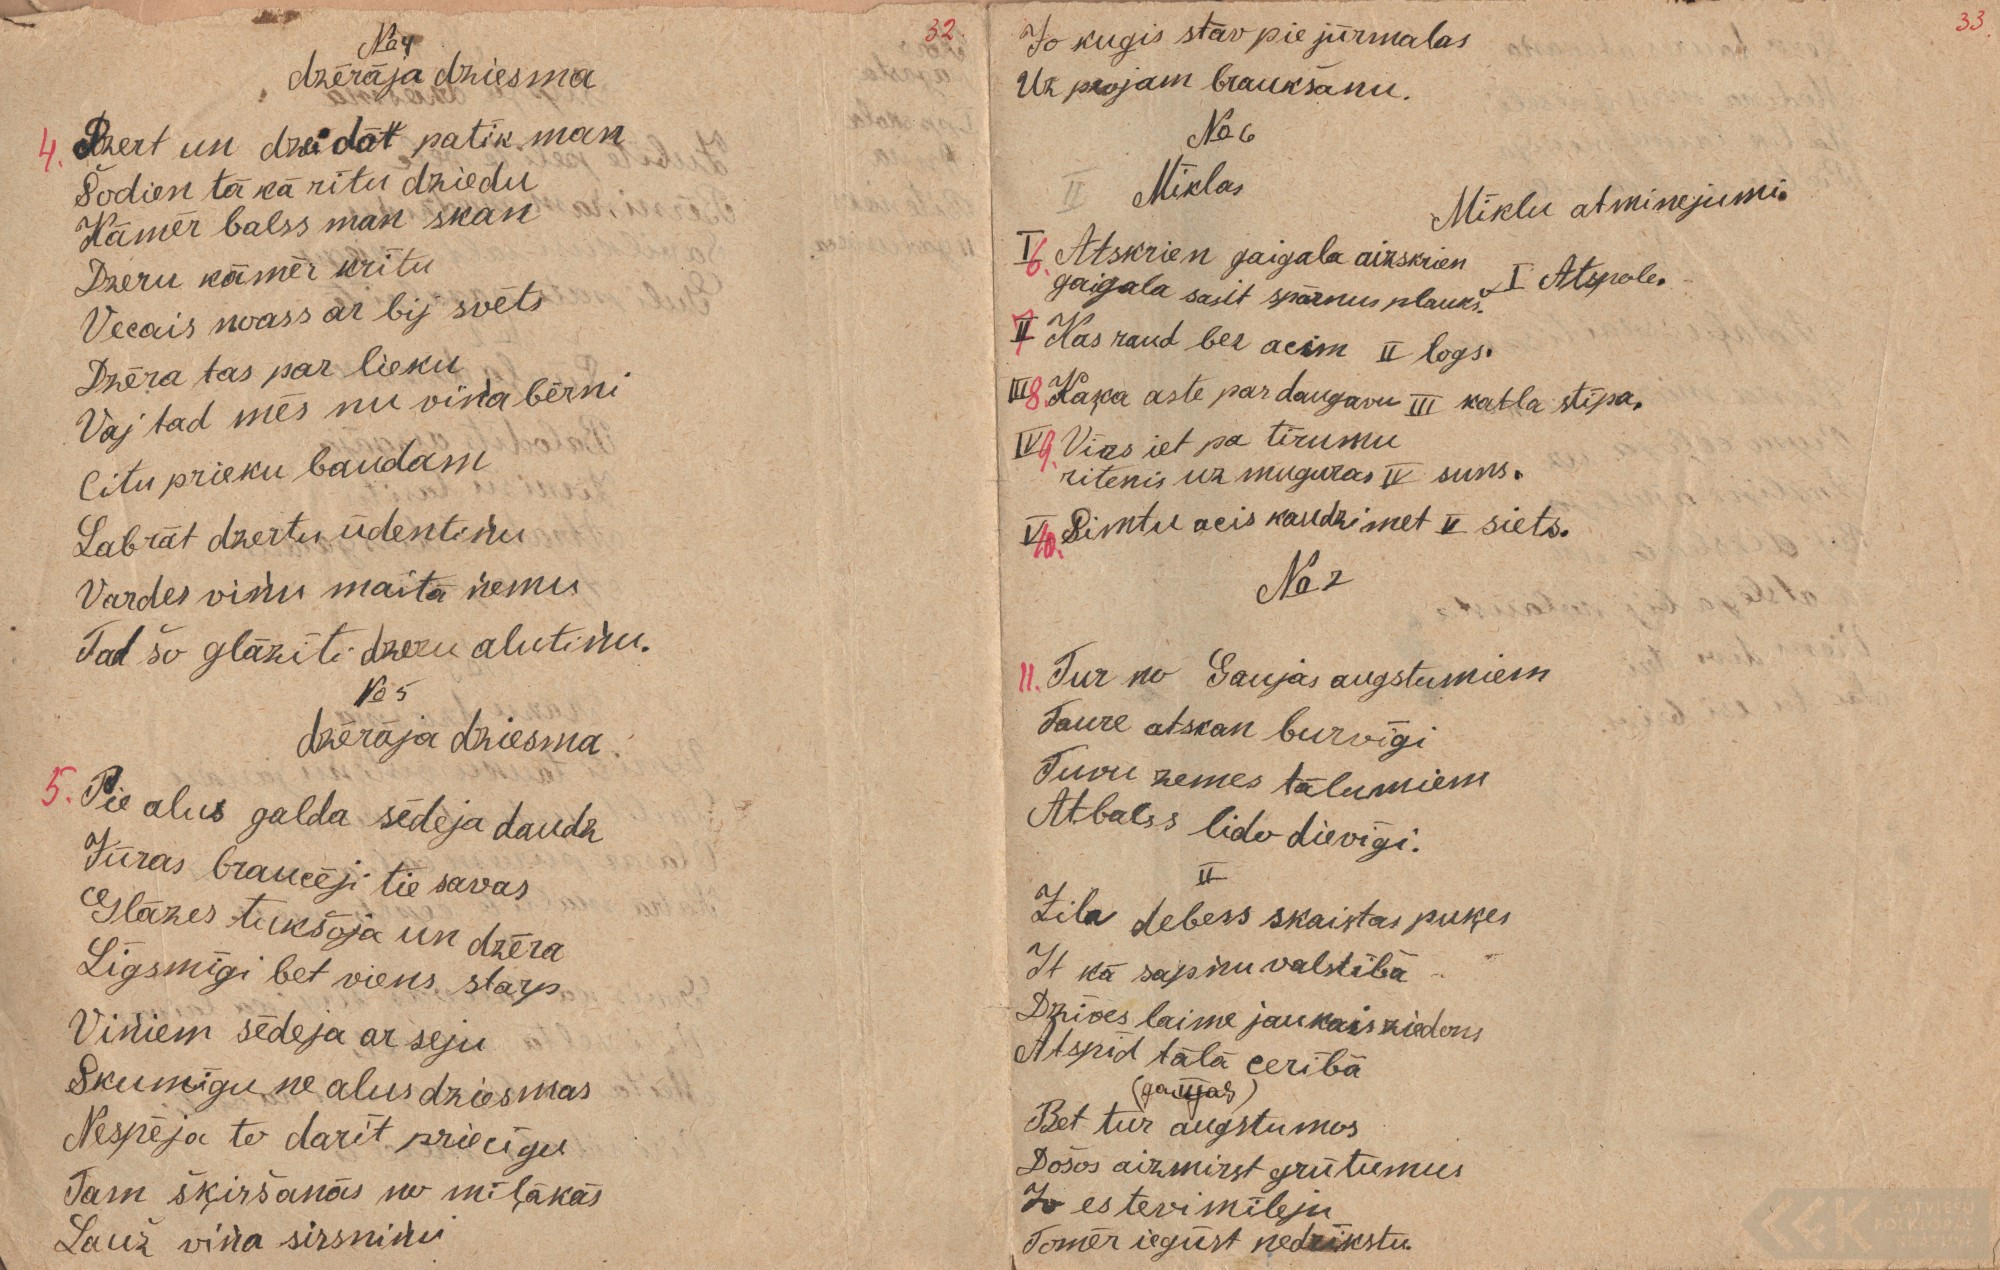 32.
No 4
dzērāja dziesma
4. Dzert un dziedāt patīk man
Šodien tā kā rītu dziedu
Kāmēr balss man skan
Dzeru kāmēr kritu
Vecais noass ar bij svēts
Dzēra tas par lieku
Vaj tad mēs nu viņa bērni
Citu prieku baudam
Labrāt dzertu ūdentiņu
Vardes viņu maitā ņemus
Tad šo glāzīti dzeru alutiņu.
No 5
dzērāja dziesma
5. Pie alus galda sēdeja daudz
Jūras braucēji tie savas
Glāzes tukšoja un dzēra
Līgsmīgi bet viens starp
Viņiem sēdeja ar seju
Skumīgu ne alus dziesmas
Nespēja to darīt priecīgu
Tam šķiršanās no mīļākās
Lauž viņa sirsniņu
33.
Jo kugis stāv pie jūrmalas
Uz projam braukšanu.
No 6
Mīklas
Mīklu atminejumi.
I 6. Atskrien gaigala aizskrien
gaigala sasit spārnus plaukš. I Atspole.
II 7 Kas raud bez acim II logs.
III 8. Kaķa aste par daugavu III katla stīpa.
IV 9. Virs iet pa tīrumu
ritenis uz muguras IV suns.
V 10. Simtu acis kaudzi met V siets.
No 2
11. Tur no Gaujas augstumiem
Taure atskan burvīgi
Tuvu zemes tālumiem
Atbalss lido dievīgi.
II
Zila debess skaistas puķes
It kā sapņu valstībā
Dzīves laime jaukais ziedons
Atspīd tālā cerībā
(gaujas)
Bet tur augstumos
Došos aizmirst grūtumus
Jo es tevi mīleju
Tomēr iegūst nedrīkstu.
LATVIEŠU
FOLKLORAS
KRĀTUVE